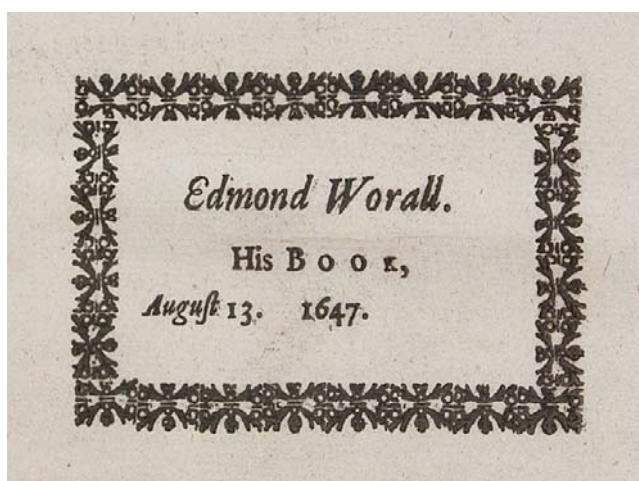 Edmond Worall.
His Book,
Auguſt 13. 1647.